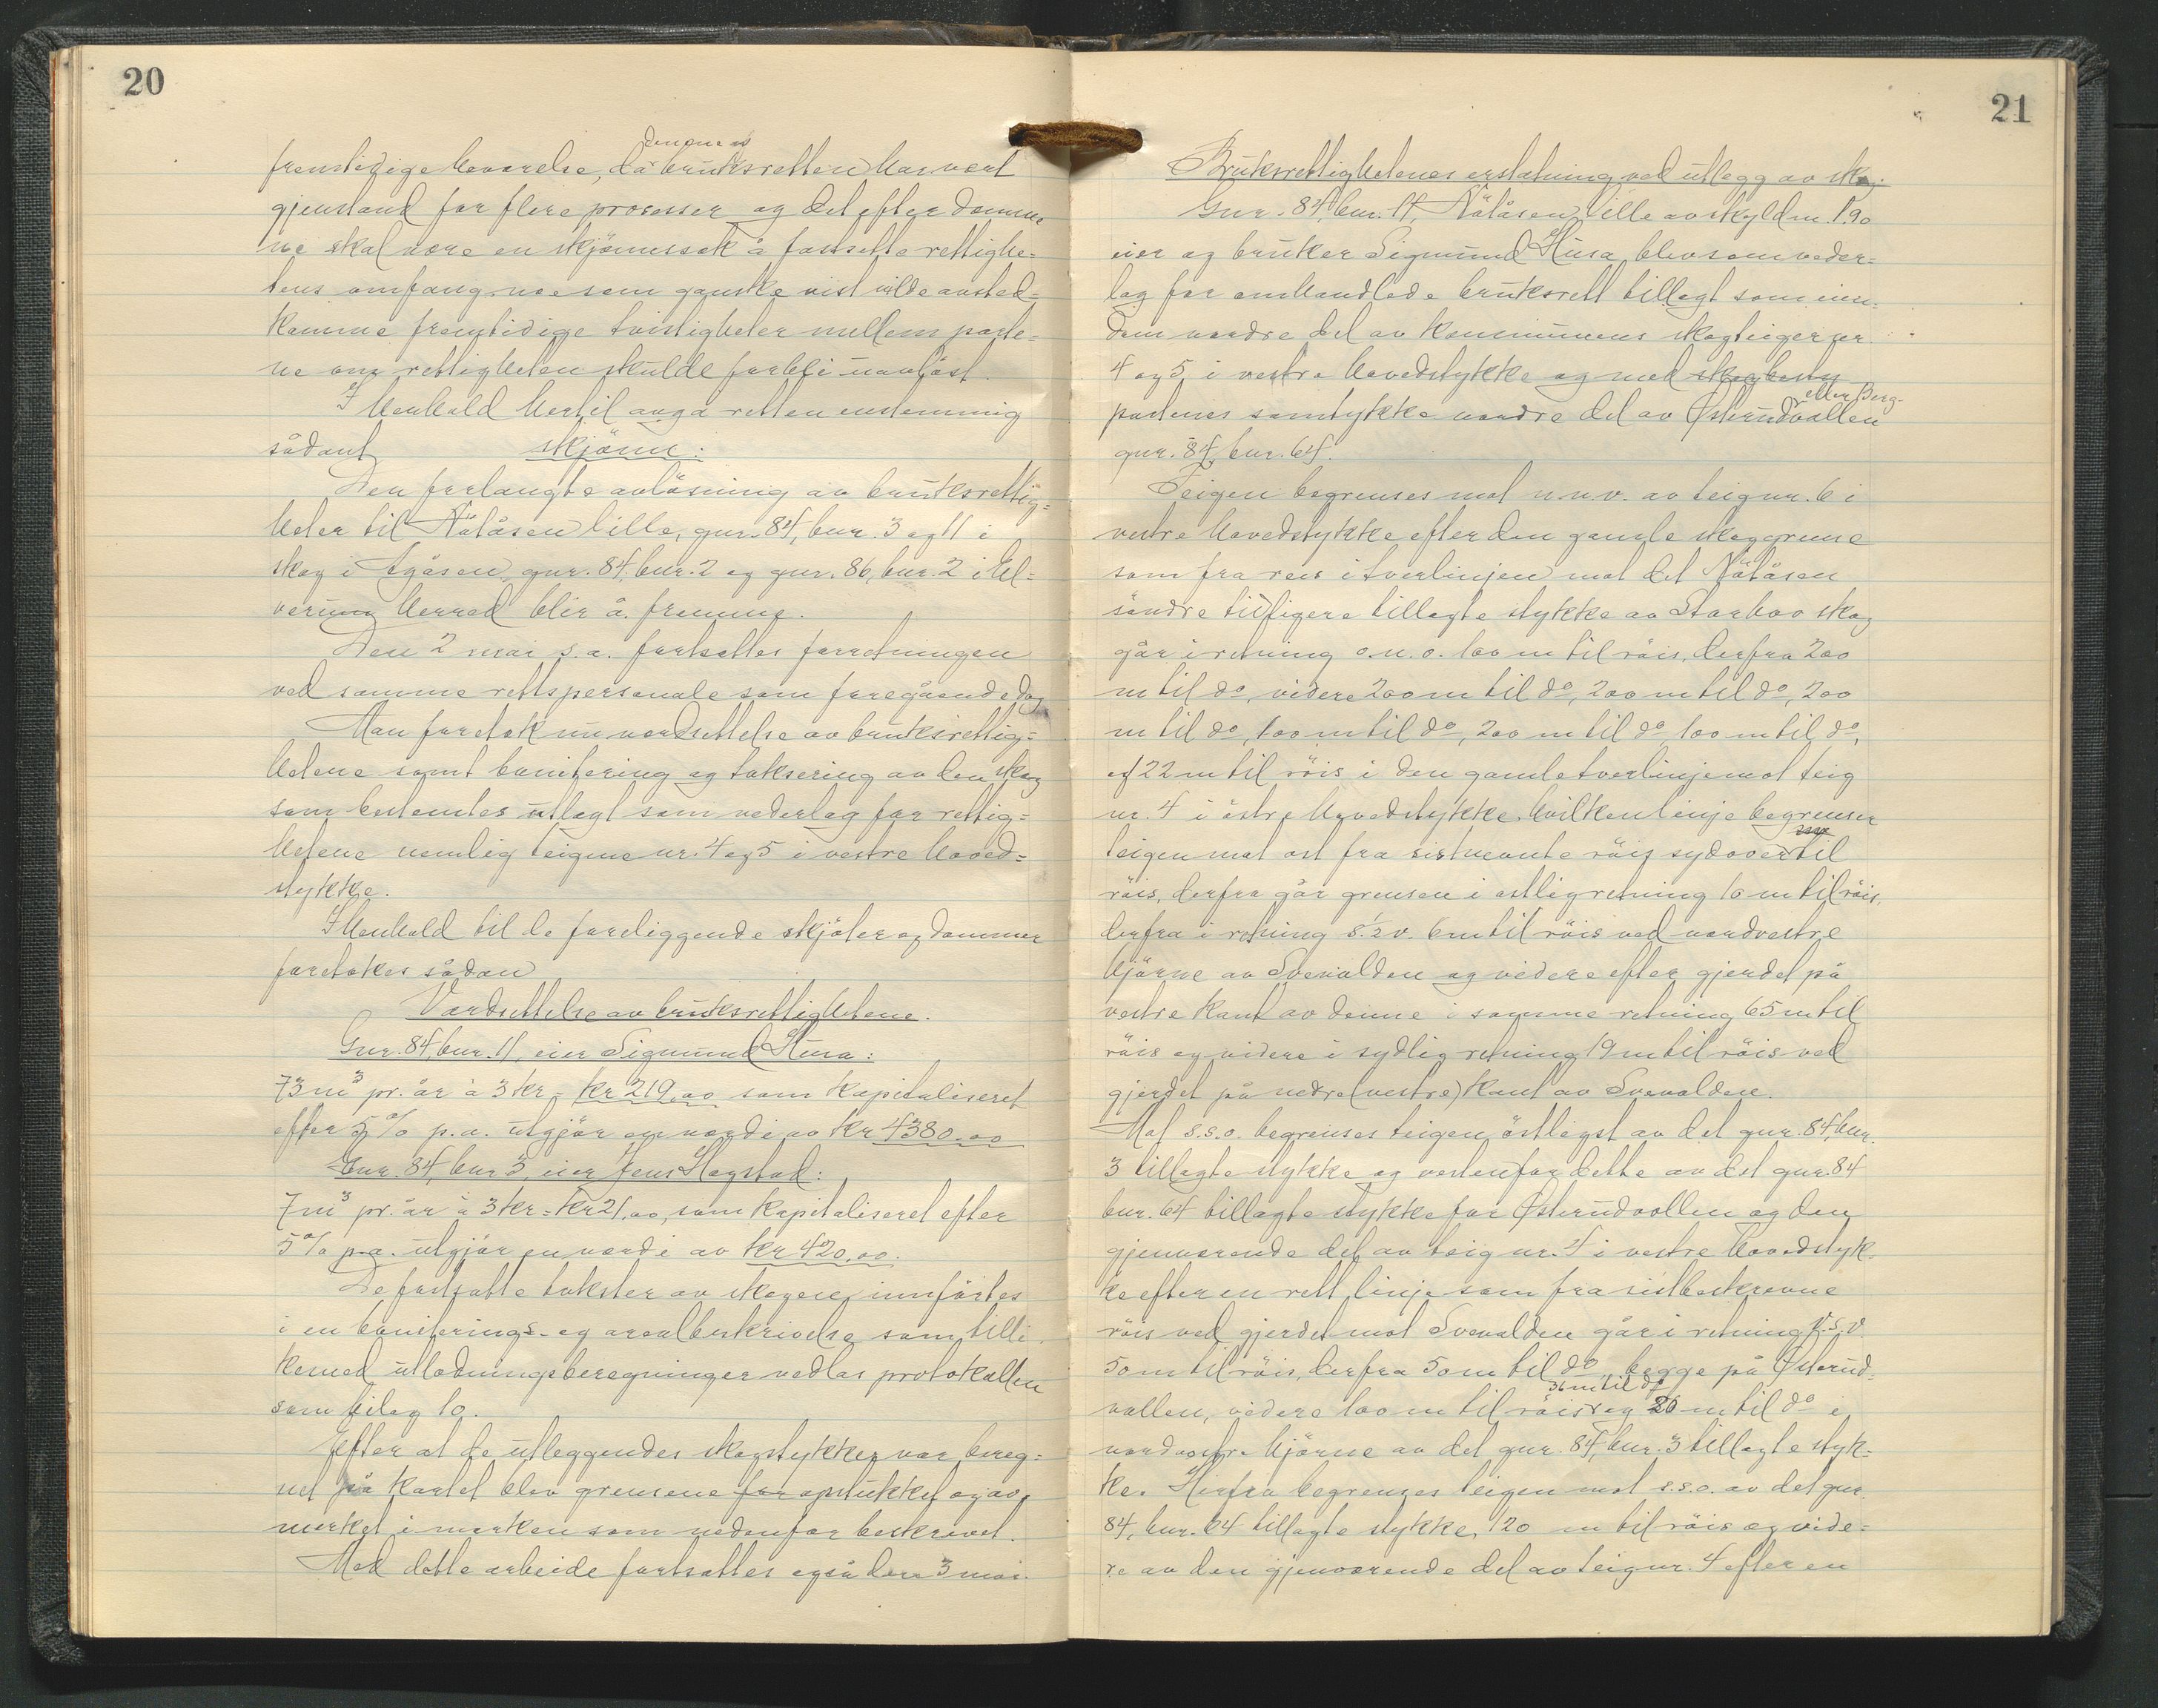 20
denne
fremtidige bevarelse, da bruksretten har vært
gjenstand for flere prosesser og det efter domme
ne skal være en skjønnssak å fastsette rettighe=
tens omfang noe som ganske vist vilde avsted=
komme fremtidige tvistigheter mellem parte=
ne om rettigheten skulde forbli uavløst.
I henhold hertil avga retten enstemmig
sådant skjønn:
Den forlangte avløsning av bruksrettig=
heter til Nätåsen lille, gnr. 84, bnr. 3 og 11 i
skog i Agåsen, gnr. 84, bnr. 2 og gnr. 86, bnr. 2 i El=
verum herred blir å fremme.
Den 2 mai s.a. fortsattes forretningen
ved samme rettspersonale som foregående dag.
Man foretok nu verdsettelse av bruksrettig=
hetene samt bonitering og taksering av den skog
som bestemtes utlagt som vederlag for rettig=
hetene nemlig teigene nr. 4 og 5 i vestre hoved=
stykke.
I henhold til de foreliggende skjøter og dommer
foretokes sådan
Verdsettelse av bruksrettighetene.
Gnr. 84, bnr. 11, eier Sigmund Husa:
73 m³ pr. år à 3 kr = kr 219,00 som kapitaliseret
efter 5 % p.a. utgjør en verdi av kr 4380.00
Gnr. 84, bnr 3, eier Jens Hagstad:
7 m³ pr. år à 3 kr = kr 21,00, som kapitaliseret efter
5 % p.a. utgjør en verdi av kr 420.00.
De fastsatte takster av skogene innførtes
i en boniterings- og arealbeskrivelse som tilli=
kemed utlodningsberegninger vedlas protokollen
som bilag 10.
Efter at de utleggendes skogstykker var bereg=
net på kartet blev grensene for opstukket og av=
merket i marken som nedenfor beskrevet.
Med dette arbeide fortsattes også den 3 mai.
21
Bruksrettighetenes erstatning ved utlegg av skog.
Gnr. 84, bnr. 11, Nätåsen lille av skyldm. 1.90
eier og bruker Sigmund Husa, blev som veder=
lag for omhandlede bruksrett tillagt som eien=
dom nordre del av kommunens skogteiger nr.
4 og 5 i vestre hovedstykke og med skog
eller Berg-
partenes samtykke nordre del av Østerudvollen
gnr. 84, bnr. 64.
Teigen begrenses mot n.n.v. av teig nr. 6 i
vestre hovedstykke efter den gamle skoggrense
som fra røis i tverlinjen mot det Nätåsen
søndre tidligere tillagte stykke av Storhov skog
går i retning o.n.o. 100 m til røis, derfra 200
m til do, videre 200 m til do, 200 m til do, 200
m til do, 100 m til do, 200 m til do, 100 m til do,
og 22 m til røis i den gamle tverlinje mot teig
nr. 4 i østre hovedstykke. hvilken linje begrenser
teigen mot ost fra sistnevnte røis sydover til
røis, derfra går grensen i ostlig retning 10 m til røis,
derfra i retning s. ½ v. 6 m til røis ved nordvestre
hjørne av Svevolden og videre efter gjerdet på
vestre kant av denne i samme retning 65 m til
røis og videre i sydlig retning 19 m til røis ved
gjerdet på nedre (vestre) kant av Svevolden.
Mot s.s.o. begrenses teigen østligst av det gnr. 84, bnr.
3 tillagte stykke og vestenfor dette av det gnr. 84
bnr. 64 tillagte stykke for Østerudvollen og den
gjenværende del av teig nr. 4 i vestre hovedstyk=
ke efter en rett linje som fra sistbeskrevne
røis ved gjerdet mot Svevolden går i retning v.s.v.
50 m til røis, derfra 50 m til do, begge på Østerud=
36 m til do
vollen, videre 100 m til røis og 20 m til do i
nordvestre hjørne av det gnr. 84, bnr. 3 tillagte styk=
ke. Herfra begrenses teigen mot s.s.o. av det gnr.
84, bnr. 64 tillagte stykke, 120 m til røis og vide=
re av den gjenværende del av teig nr. 4 efter en